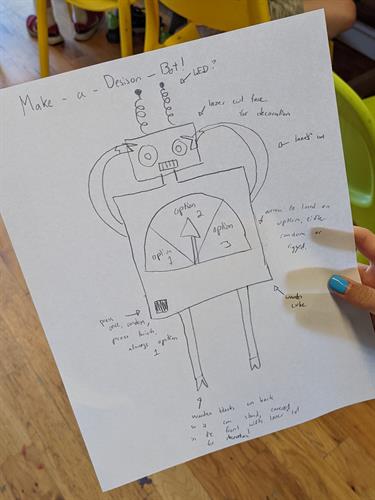 Make - a - Desison - Bot!
LED?
laser cut face
for decoration
laser cut
option
2
option
1
option
3
arrow to land on
option, either
random or
rigged.
press
once, random,
press twice,
always option
1
wooden
cube
wooden blocks on back
so it can stand,
front with laser cut
for decoration!